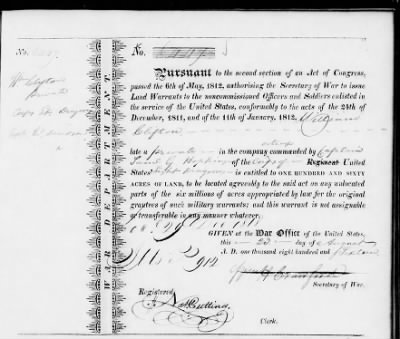 No.
No.
Pursuant to the second section of an Act of Congress,
passed the 6th of May, 1812, authorising the Secretary of War to issue
Land Warrants to the noncommissioned Officers and Soldiers enlisted in
the service of the United States, conformably to the acts of the 24th of
December, 1811, and of the 11th of January, 1812, William
Clifton
late a private in the company commanded by Captain
Hopkins of the Corps of Regiment United
States is entitled to ONE HUNDRED AND SIXTY
ACRES OF LAND, to be located agreeably to the said act on any unlocated
parts of the six millions of acres appropriated by law for the original
grantees of such military warrants; and this warrant is not assignable
or transferable in any manner whatever.
GIVEN at the War Office of the United States,
this 23 day of August
A. D. one thousand eight hundred and
Wm H Crawford
Secretary of War.
Registered,
Clerk.
WAR DEPARTMENT.
Wm Clifton
Private